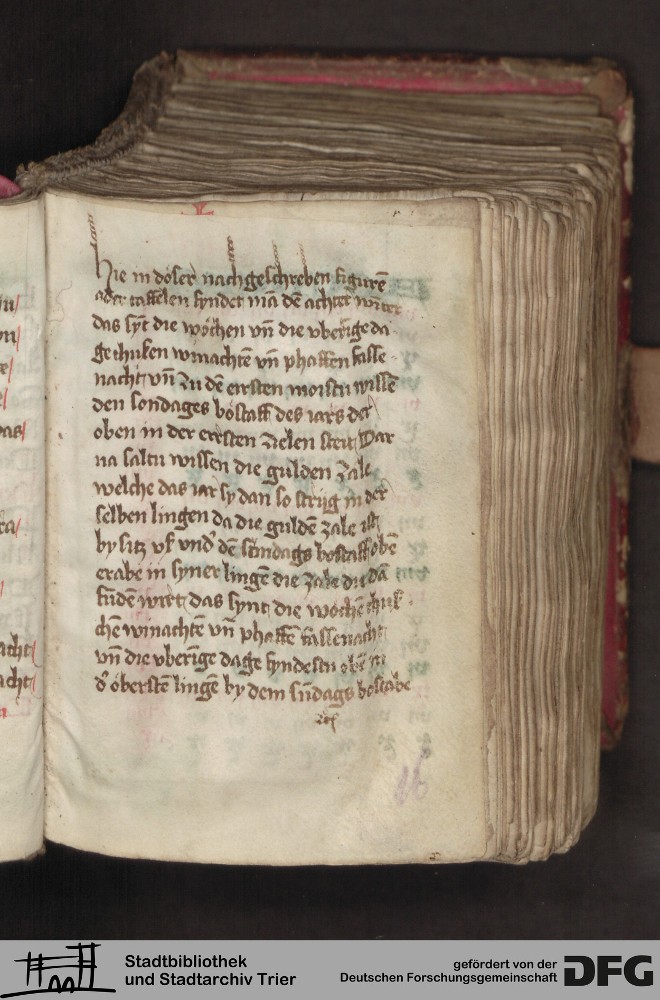 Hie in dóser nachgeschreben figurē
ader taffelen fyndet mā dē achter
das sÿt die wochen vn̄ die vberige da
ge zwischen winachtē vn̄ phaffen fasse
nacht vn̄ zu dē eirsten moistu wissē
den sondages bóstaff des iars der
oben in der eirsten zielen steit Dar
na saltu wissen die gulden zale
welche das iar sy dan so stÿg in der
selben lingen da die guldē zale ist
by sitz vf vnd' dē sondags bostaff oben
erabe in syner lingē die zale du dā
fūdē wirt das synt die wochē
chē winachtē vn̄ phaffē fassenacht
vn̄ die vberige dage fyndestu obē in
d' óberstē lingē by dem sūdags bostabe
16
Stadtbibliothek
und Stadtarchiv Trier
gefördert von der
Deutschen Forschungsgemeinschaft
DFG